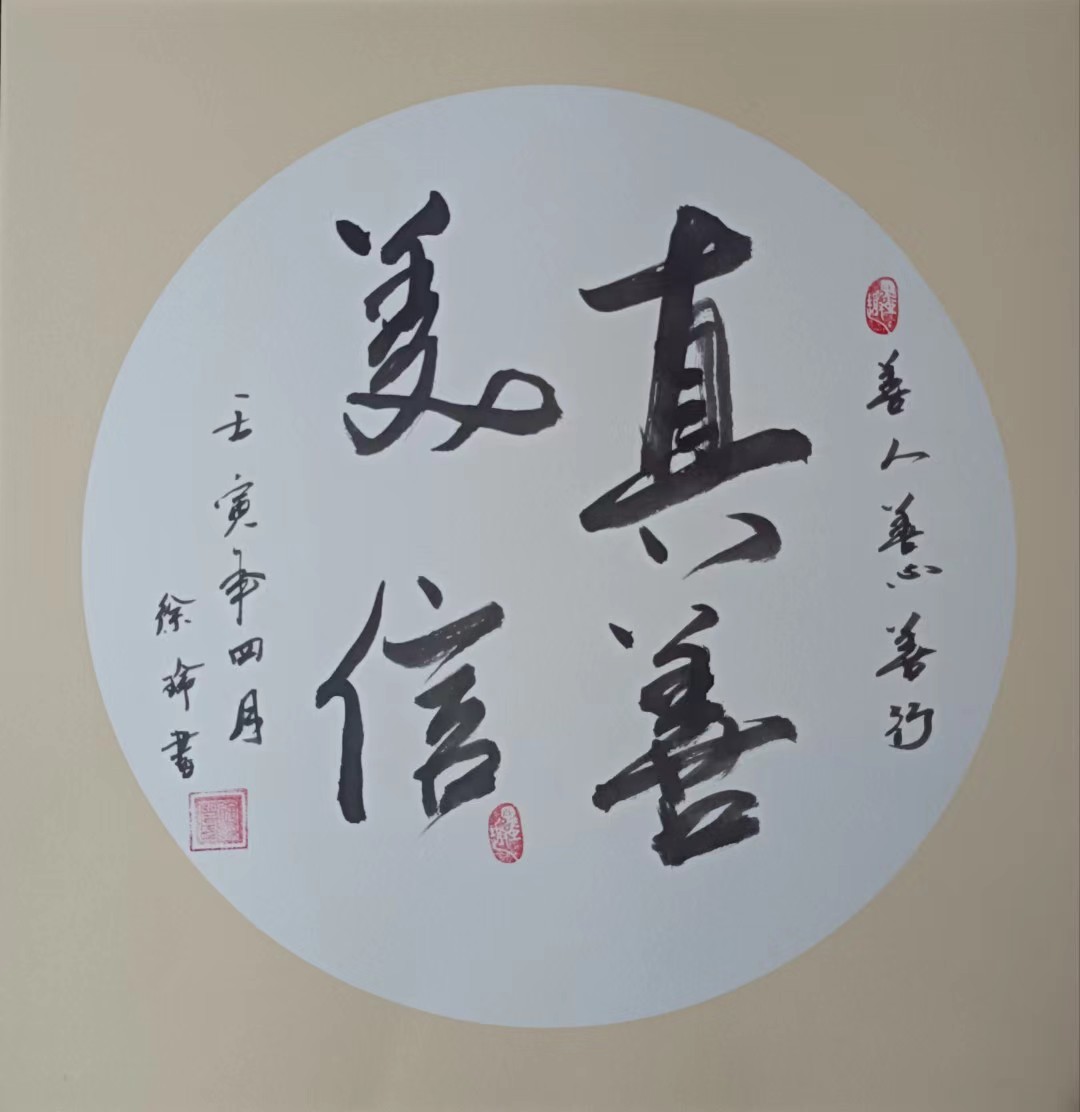 善人善心善行
真善
美信
壬寅年四月
徐玲書